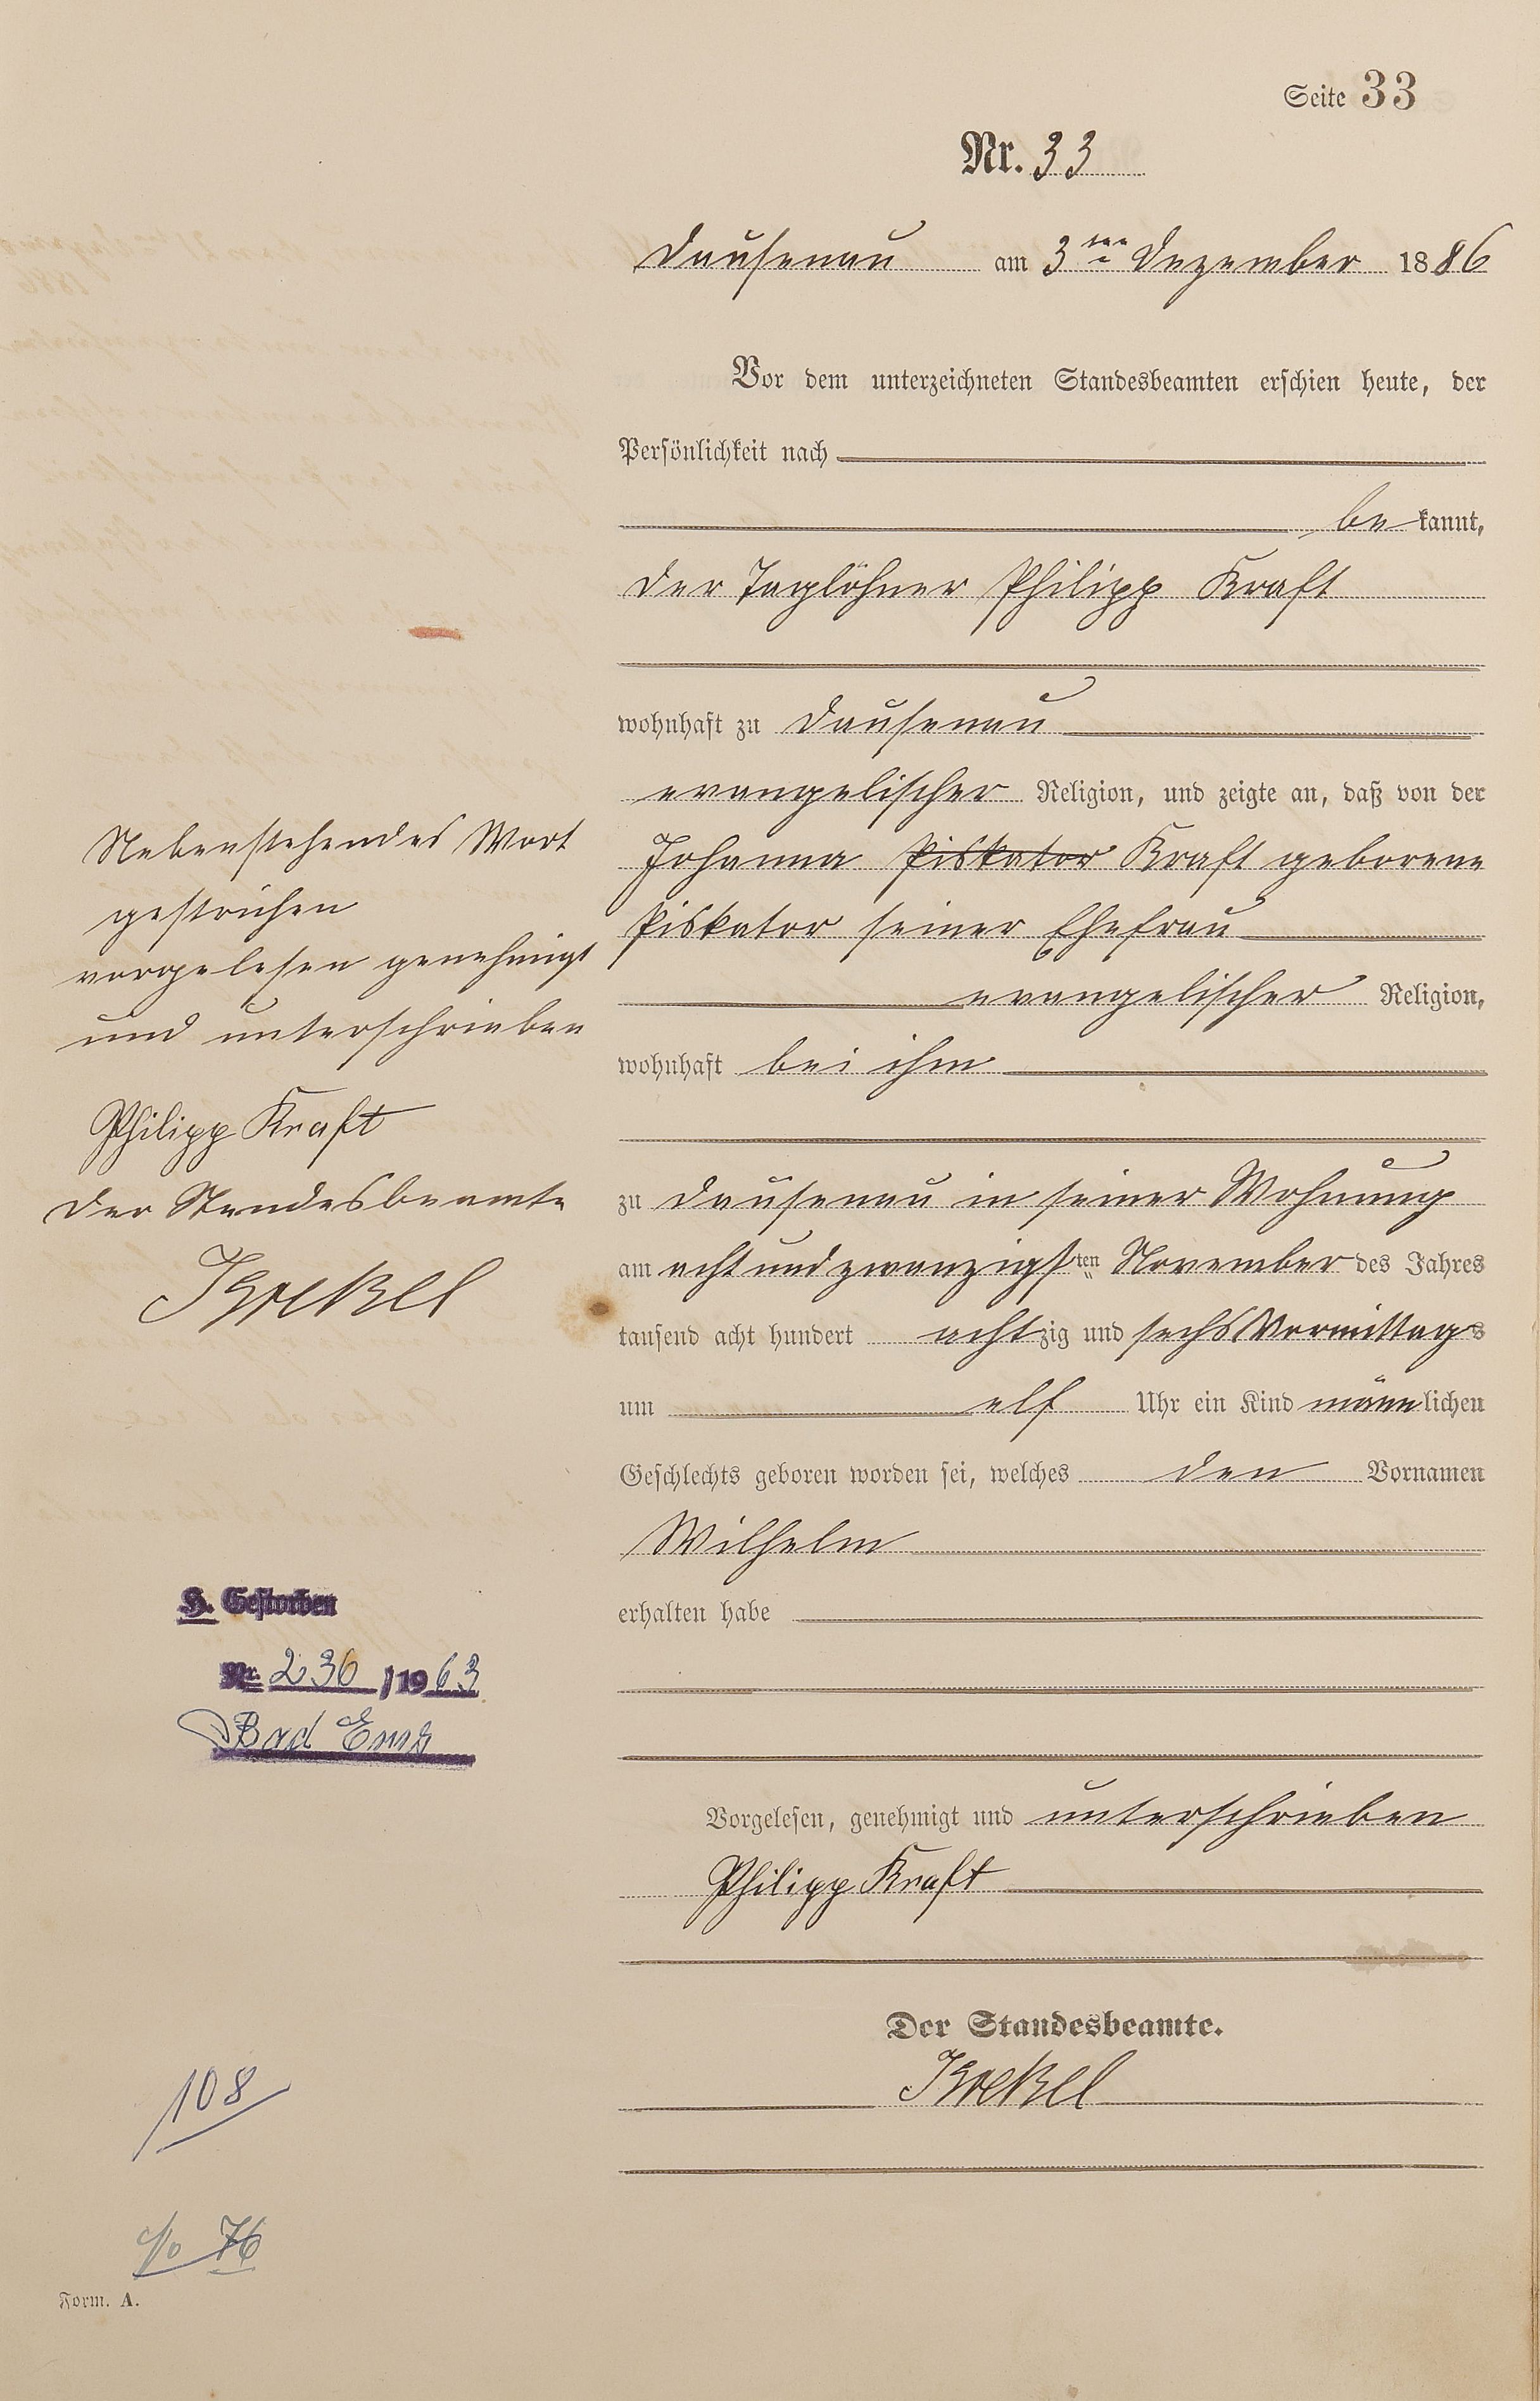 Seite 33
Nr. 33
Dausenau am 3ten Dezember 1886
Vor dem unterzeichneten Standesbeamten erschien heute, der
Persönlichkeit nach
bekannt,
der Taglöhner Philipp Kraft
wohnhaft zu Dausenau
evangelischer Religion, und zeigte an, daß von der
Johanna Piskator Kraft geborene
Piskator seiner Ehefrau
evangelischer Religion,
wohnhaft bei ihm
zu Dausenau in seiner Wohnung
am acht und zwanzigsten November des Jahres
tausend acht hundert achtzig und sechs Vormittags
um elf Uhr ein Kind männlichen
Geschlechts geboren worden sei, welches den Vornamen
Wilhelm
erhalten habe
Vorgelesen, genehmigt und unterschrieben
Philipp Kraft
Der Standesbeamte.
Nebenstehendes Wort
gestrichen
vorgelesen genehmigt
und unterschrieben
Philipp Kraft
Der Standesbeamte
H. Gestorben
Nr. 230 /1963
Bad Ems
108
76
Form. A.